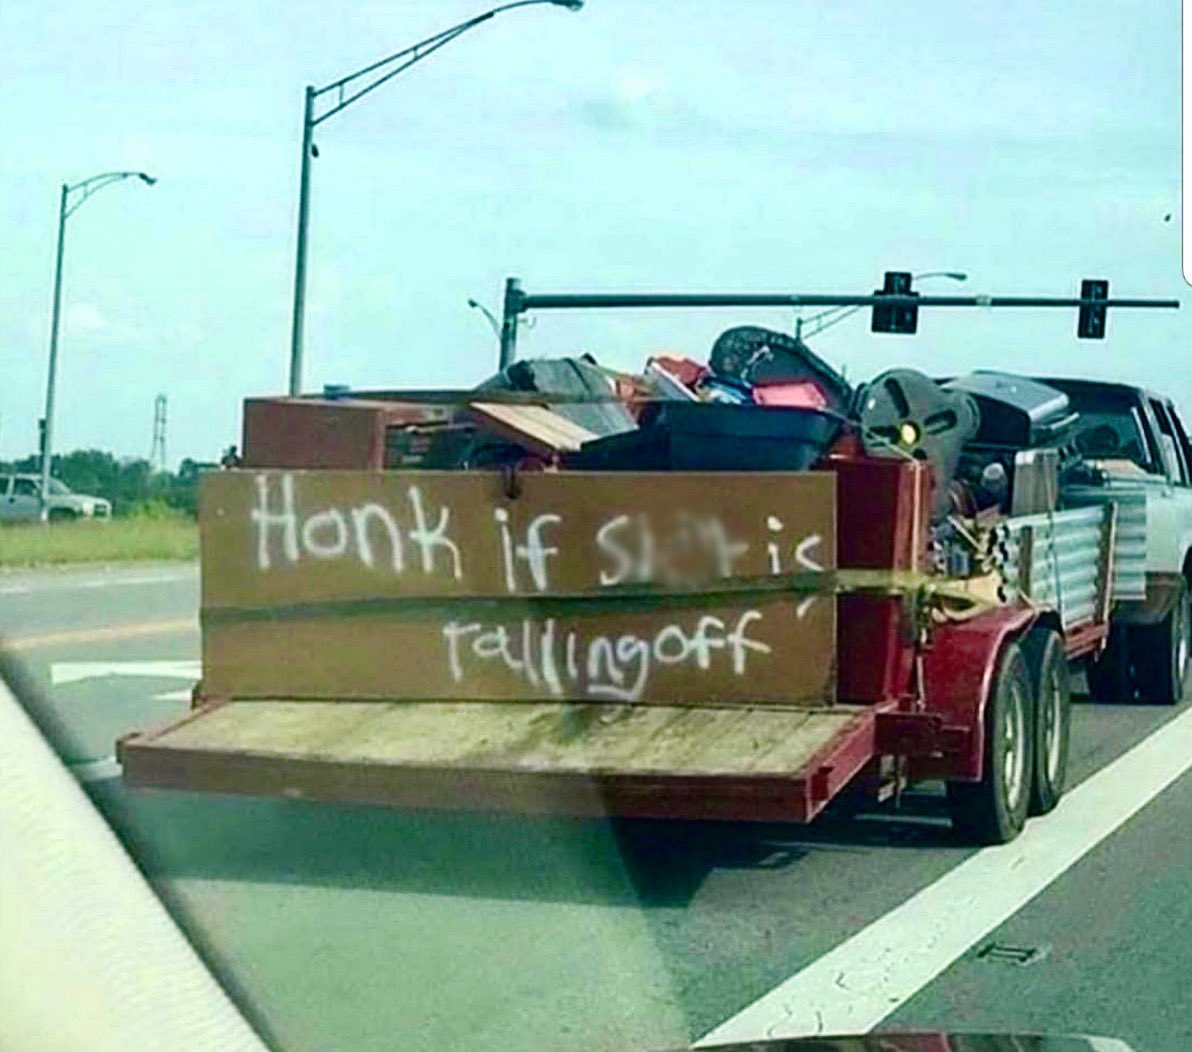 Honk if is
falling off